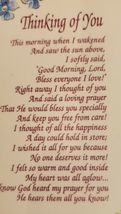 Thinking of You
This morning when I wakened
And saw the sun above,
I softly said,
'Good Morning, Lord,
Bless everyone I love!'
Right away I thought of you
And said a loving prayer
That He would bless you specially
And keep you free from care!
I thought of all the happiness
A day could hold in store;
I wished it all for you because
No one deserves is more!
I felt so warm and good inside
My heart was all aglow...
know God heard my prayer for you
He hears them all you know!